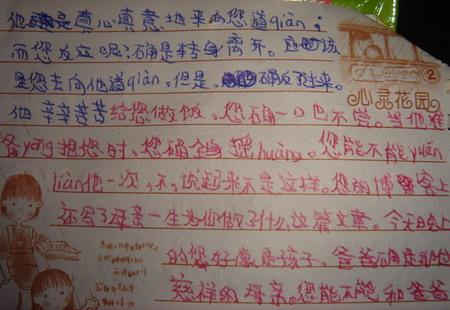 他是真心真意地来向您道qiàn,
而您反立呢,确是转身离开。应该
是您去向他道qiàn,但是、确反过来。
他辛辛苦苦给您做饭,您确一口也不尝。当他准
备yōng抱您时,您确全身huāng。您能不能yuán
liàng他一次,不,说起来不是这样。您的博客上
还写了母亲一生为你做了什么这篇文章。今天晚上
的您好像是孩子,爸爸确是那位
慈祥的母亲。您能不能和爸爸
心灵花园
2